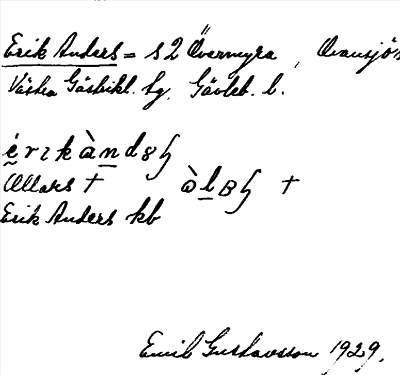 Erik Anders = s 2 Övermyra, Ovansjö s
Västra Gästrikl. hg. Gävleb. l.
érɩkàndsh
Ollars † àlBh †
Erik Anders kb
Emil Gustavsson 1929.